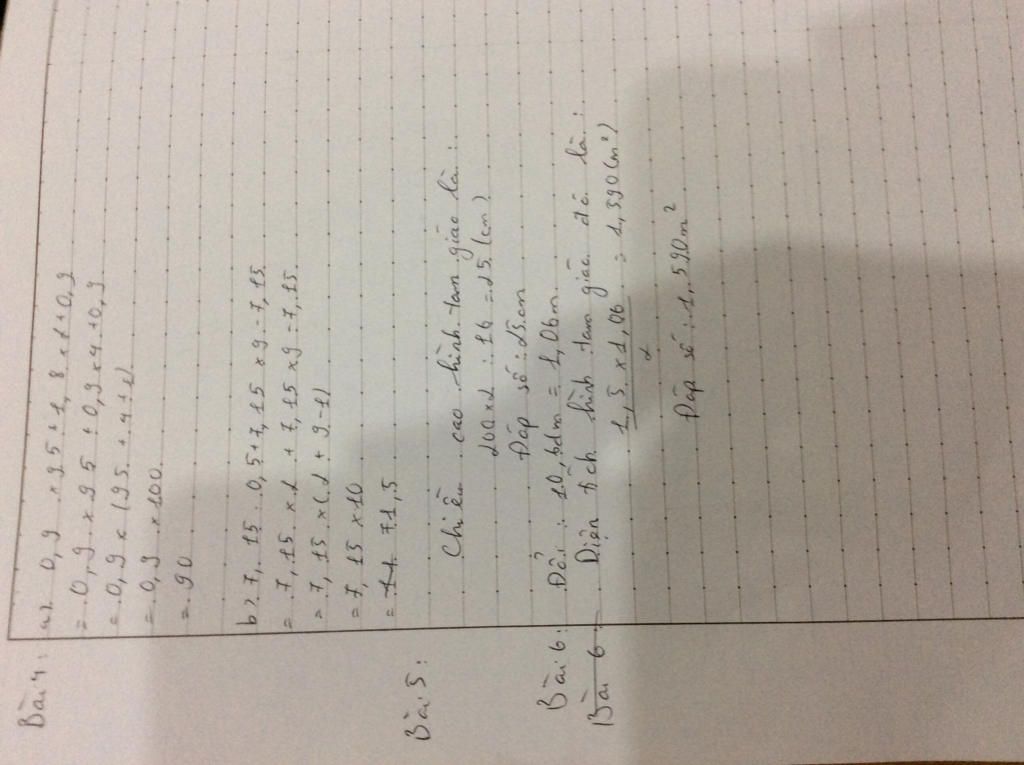 Bài 4: a) 0,9 x 95 + 1,8 x 2 + 0,9
= 0,9 x 95 + 0,9 x 4 + 0,9
= 0,9 x (95 + 4 + 1)
= 0,9 x 100
= 90
b) 7,15 : 0,5 + 7,15 x 9 - 7,15
= 7,15 x 2 + 7,15 x 9 - 7,15
= 7,15 x (2 + 9 - 1)
= 7,15 x 10
= 71,5
Bài 5: Chiều cao hình tam giác là:
200 x 2 : 16 = 25 (cm)
Đáp số: 25 cm
Bài 6: Đổi: 10,6dm = 1,06m
Bài 6: Diện tích hình tam giác đó là:
= 1,590 (m²)
2
Đáp số: 1,590m²